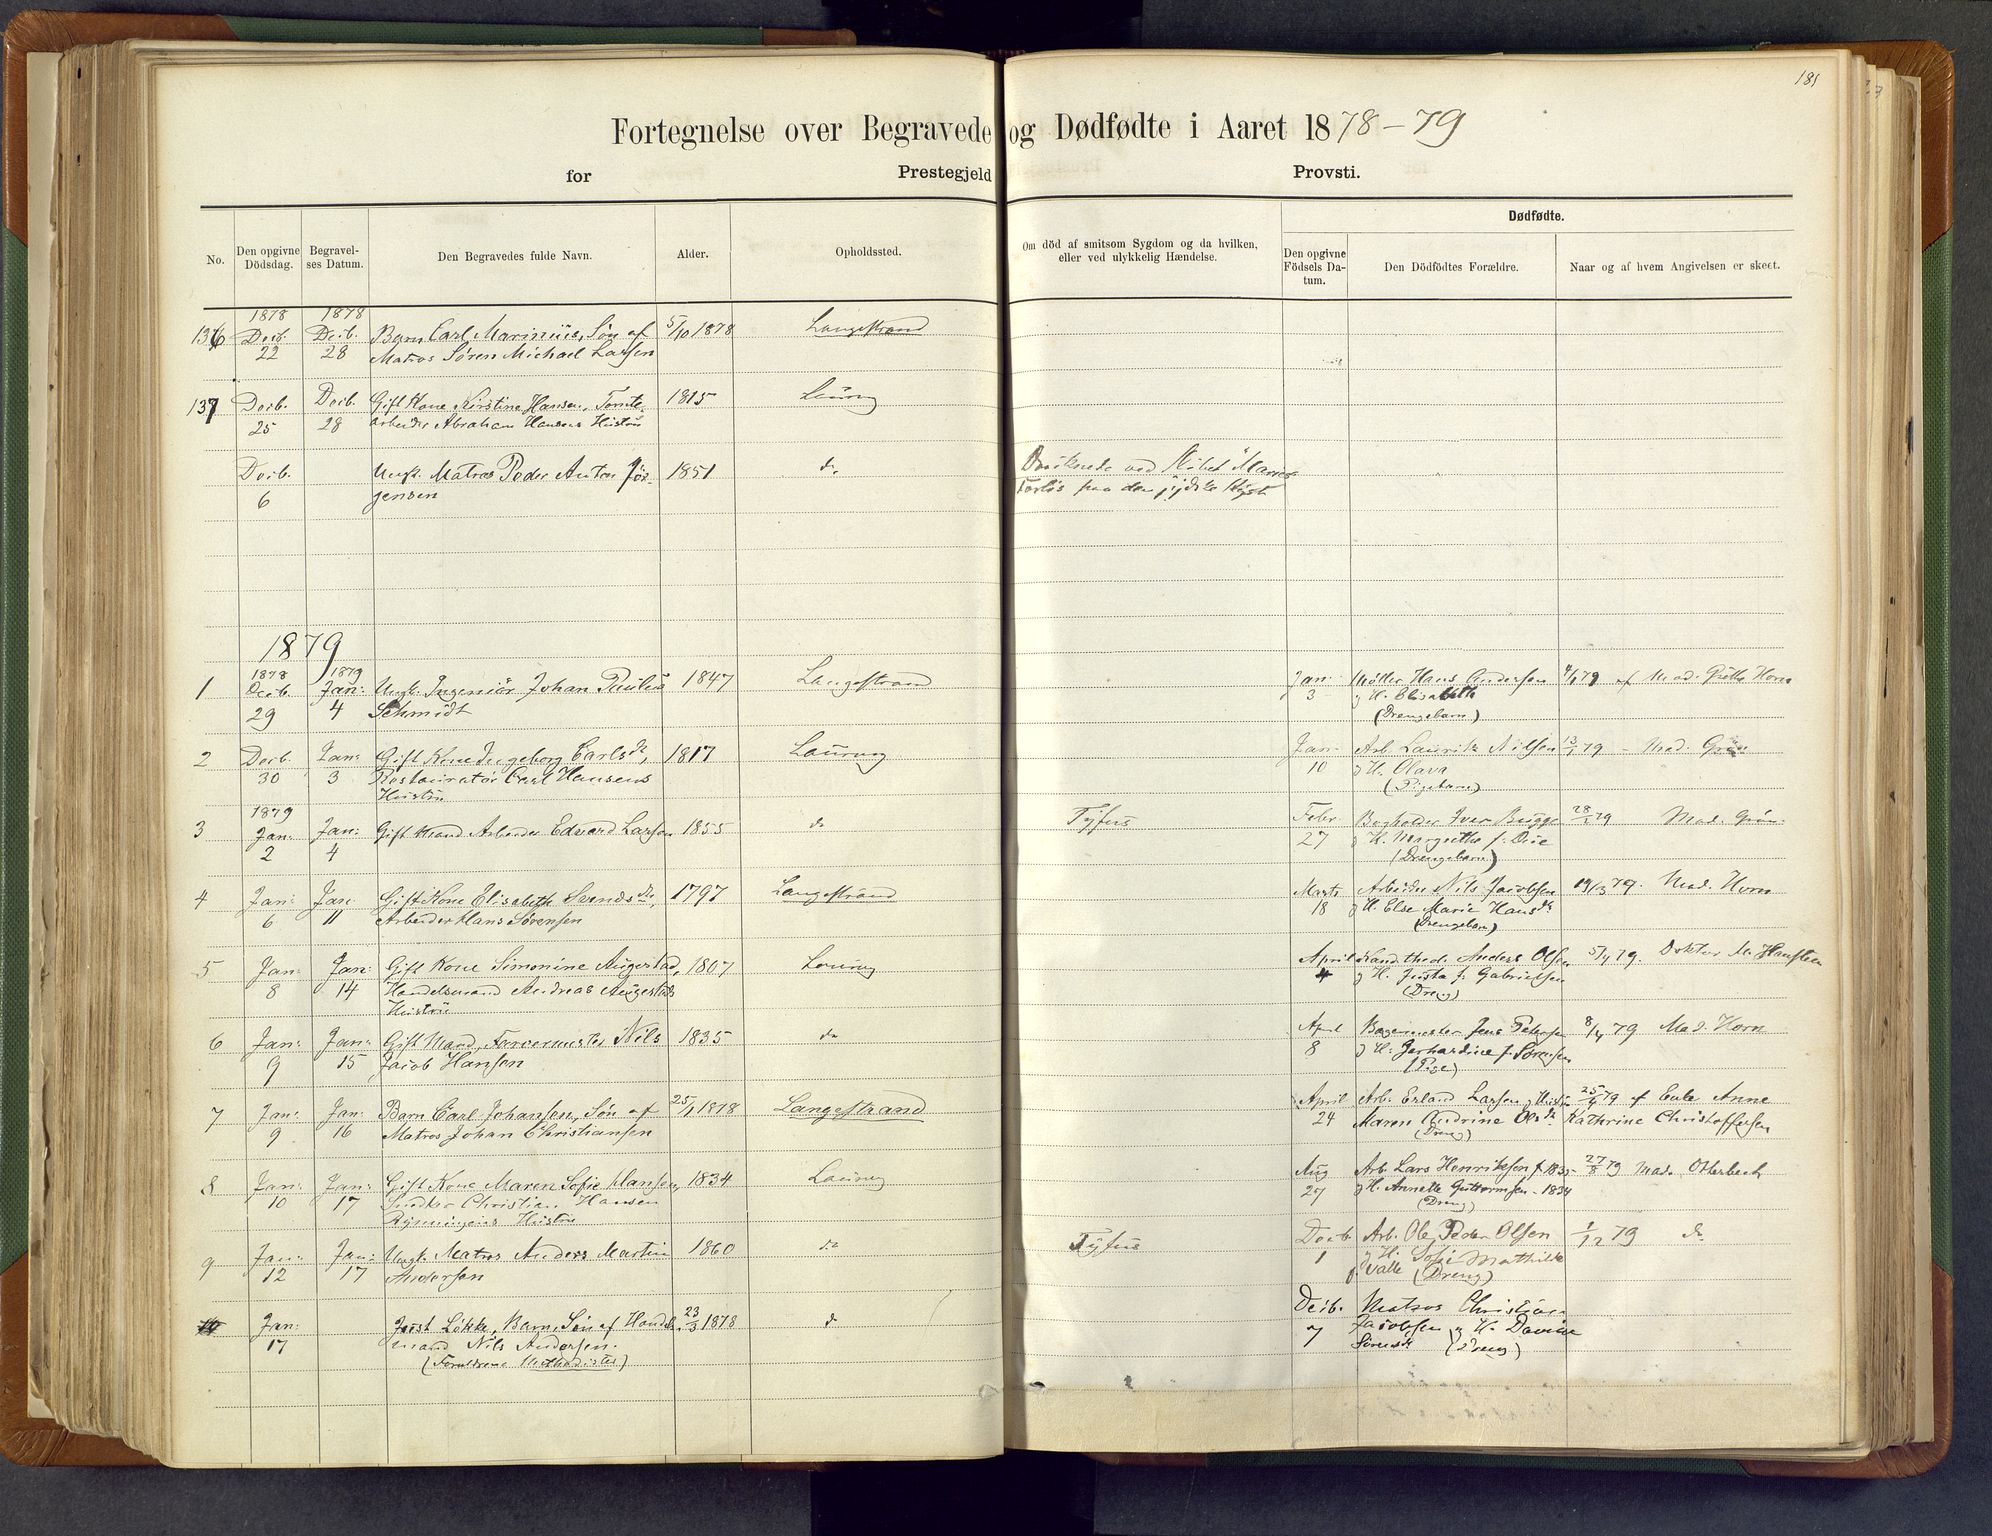 181
Fortegnelse over Begravede og Dødfødte i Aaret 1878-79
for Prestegjeld Provsti.
No.
Den opgivne Dödsdag.
Begravel-
ses Datum.
Den Begravedes fulde Navn.
Alder.
Opholdssted.
Om död af smitsom Sygdom og da hvilken,
eller ved ulykkelig Hændelse.
Dødfødte.
Den opgivne
Födsels Da-
tum.
Den Dödfödtes Forældre.
Naar og af hvem Angivelsen er skeet.
1878 1878
136 Decb. Decb. Barn Carl Marinius, Søn af 5/10 1878 Langestrand
22 28 Matros Søren Michael Larsen
137 Decb. Decb. Gift Kone Kirstine Hansen, Tomte- 1815 Laurvig
25 28 arbeider Abraham Hansens Hustru
Decb. Ungk. Matros Peder Anton Jör- 1851 do Druknede ved Skibet
6 gensen Forlis paa den jydske Kyst
1879
1878 1879
1 Decb. Jan: Ungk. Ingeniör Johan Paulus 1847 Langestrand
29 4 Schmidt
2 Decb. Jan: Gift Kone Ingeborg Carlsdt, 1817 Laurvig
30 3 Restauratør Carl Hansens
Hustru
1879
3 Jan: Jan: Gift Mand Arbeider Edvard Larsen 1855 do Tyfus
2 4
4 Jan: Jan Gift Kone Elisabeth Svendsdtr, 1797 Langestrand
6 11 Arbeider Hans Sørensen
5 Jan: Jan: Gift Kone Simonine Augestad, 1807 Laurvig
8 14 Handelsmand Andreas Augestads
Hustru
6 Jan: Jan: Gift Mand, Farvermester Nils 1835 do
9 15 Jacob Hansen
7 Jan: Jan: Barn Carl Johansen, Søn af 25/1 1878 Langestrand
9 16 Matros Johan Christiansen
8 Jan: Jan: Gift Kone Maren Sofie Hansen, 1834 Laurvig
10 17 Snedker Christian Hansen
Hustru
9 Jan: Jan: Ungk. Matros Anders Martin 1860 do Tyfus
12 17 Andersen
10 Jan: Løkke, Barn, Søn af Handels- 23/3 1878 do
17 mand Nils Andersen.
(Forældrene Methodister)
Jan: Møller Hans Andersen 4/1 79 af Mad. Grethe Horn
3 og H. Elisabeth
(Drengebarn)
Jan: Arb. Laurits Nilsen 13/1 79 - Mad. Grøn
10 og H. Olava
(Pigebarn)
Febr Bogholder Iver Bugge 28/ 79 Mad. Grøn
27 og H. Margrethe f.
(Drengebarn)
Marts Arbeider Nils Jacobsen 19/3 79. Mad. Horn
18 og H. Else Marie Hansdt
(Drengebarn)
April Anders Olsen 5/4 79. Doktor M. Hansteen
4 og H. Justa f. Gabrielsen
(Dreng)
April Bagermester Jens Petersen 8/4 79 Mad. Horn
8 og H. Gerhardine f. Sørensen
(Pige)
April Arb. Erland Larsen og Hustru 25/4 79 af Enke Anne
24 Maren Andrine Olsdt Kathrine Christoffersen
(Dreng)
Aug Arb Lars Henriksen f. 1835 27/8 79 Mad. Otterbech
27 og H. Annette Guttormsen - 1834
(Dreng)
Decb Arb. Ole Peder Olsen 1/12 79 do
1 og H. Sofie Mathilde
f. Valle (Dreng)
Decb. Matros Christian
7 Jacobsen og H. Davine
Sørensdt (Dreng)